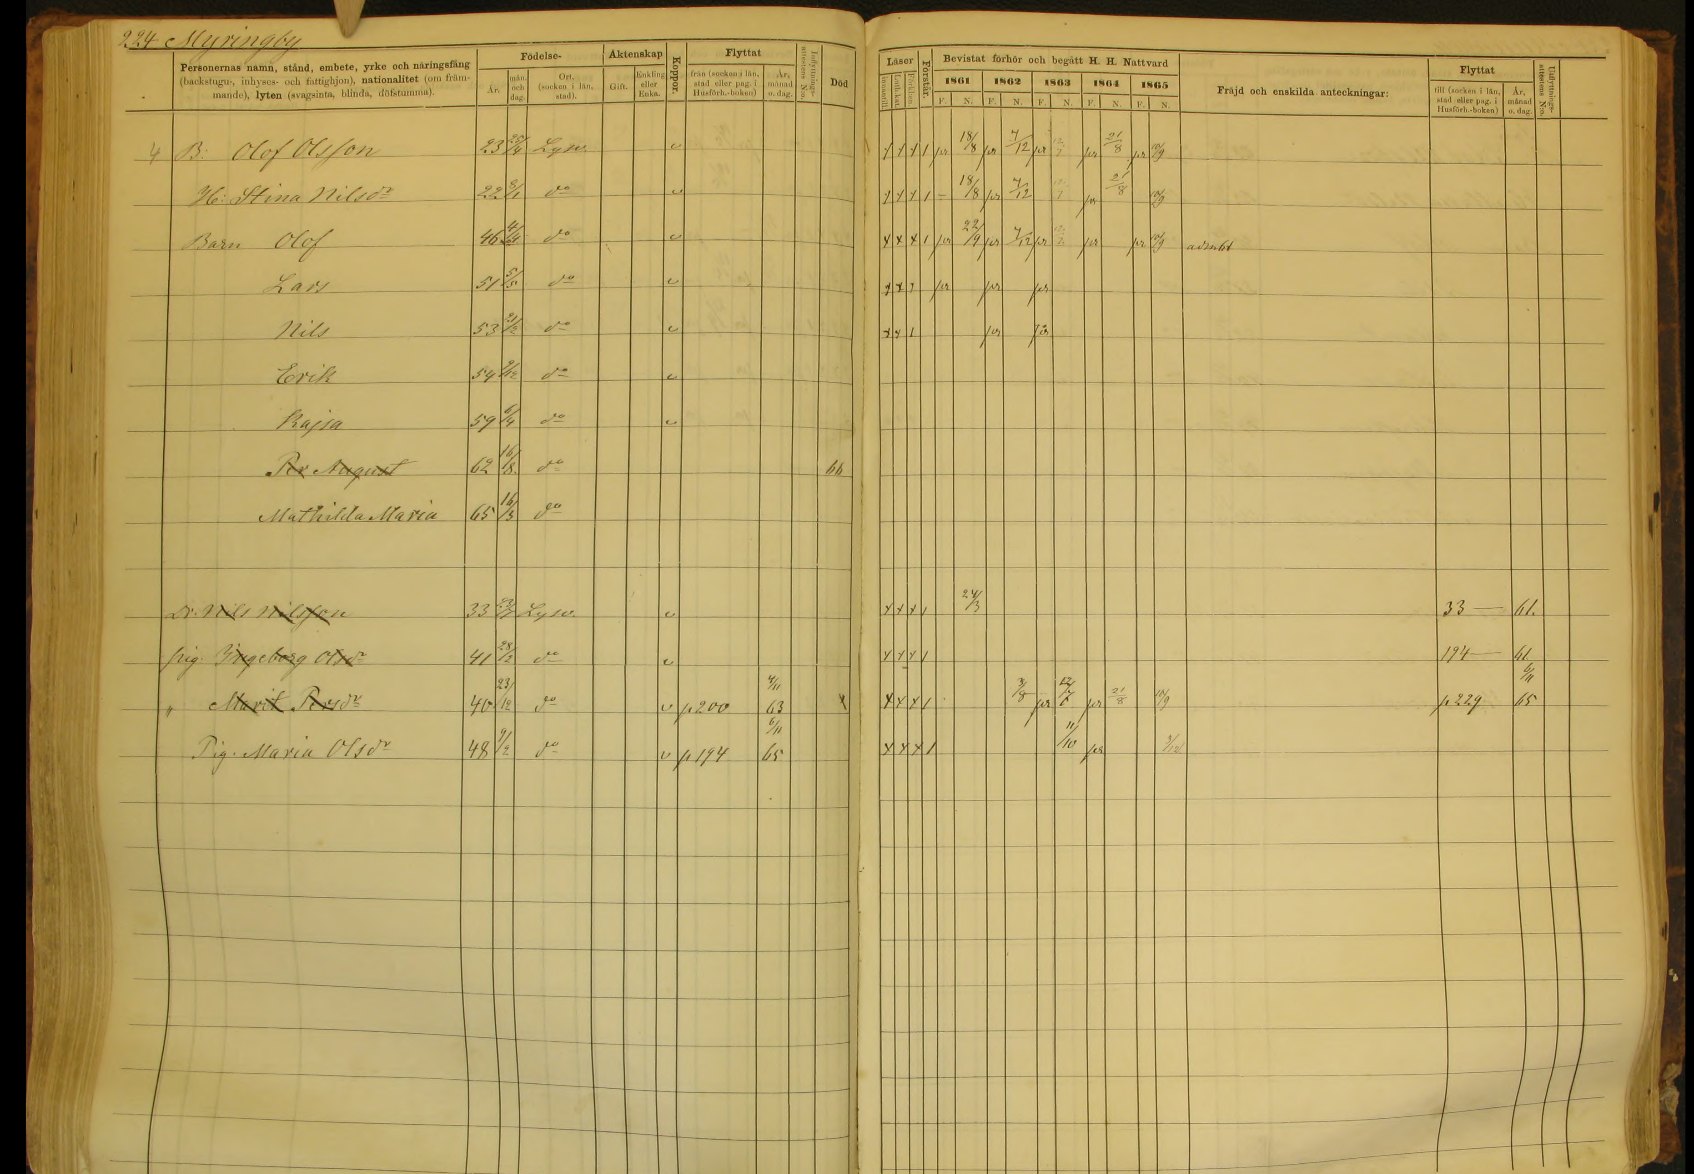 224 Myringby
Personernas namn, stånd, embete, yrke och näringsfång (backstugu-, inhyses- och fattighjon), nationalitet (om främmande), lyten (svagsinta, blinda, döfstumma).
Födelse-
År.
mån. och dag.
Ort. (socken i län, stad).
Äktenskap
Gift.
Enkling eller Enka.
Koppor.
Flyttat
från (socken i län, stad eller pag. i Husförh.-boken)
År, månad o. dag.
Inflyttnings-attestens N:o.
Död
Läser
Förstår.
Bevistat förhör och begått H. H. Nattvard
1861 1862 1863 1864 1865
F. N. F. N. F. N. F. N. F. N.
Fräjd och enskilda anteckningar:
Flyttat
till (socken i län, stad eller pag. i Husförh.-boken)
År, månad o. dag.
Utflyttnings-attestens N:o.
4 B: Olof Olsson 23 25/4 Lysv. v 18/8 pr 7/12 pr pr 21/8 pr 10/9
H: Stina Nilsdr 22 8/1 do v 18/8 pr 7/12 pr 21/8 10/9
Barn Olof 46 do v pr 22/9 pr 7/12 pr pr pr 10/9
Lars 51 5/5 do v pr pr pr
Nils 53 21/2 do v pr pr
Erik 54 9/12 do v
Kajsa 59 6/4 do v
Per August 62 16/8 do 66
Mathilda Maria 65 16/3 do
Dr. Nils Nilsson 33 Lysv. v 24/3 33 — 61.
Pig. Ingeborg Olsdr 41 28/2 do v 194 — 61
" Marit Persdr 40 23/12 do v p 200 4/11 63 3/8 pr pr 21/8 10/9 p 229 6/11 65
Pig. Maria Olsdr 48 9/2 do v p 194 6/11 65 11/10 pr 3/12